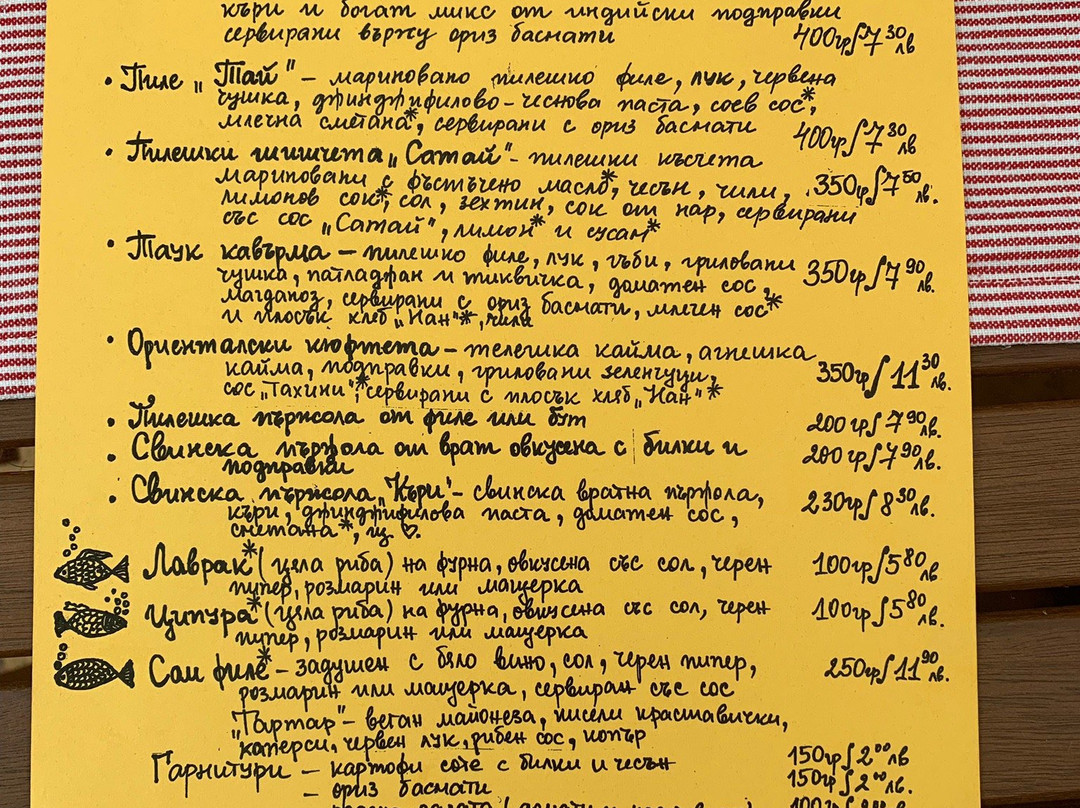 къри и богат микс от индийски подправки
сервирани върху ориз басмати 400гр/7 30 лв
• Пиле „Тай" – мариновано пилешко филе, лук, червена
чушка, джинджифилово-чеснова паста, соев сос*,
млечна сметана*, сервирани с ориз басмати 400гр/7 30 лв
• Пилешки шишчета „Сатай" – пилешки късчета
мариновани с фъстъчено масло*, чесън, чили, 350гр/7 50 лв.
лимонов сок*, сол, зехтин, сок от нар, сервирани
със сос „Сатай", лимон* и сусам*
• Таук кавърма – пилешко филе, лук, гъби, гриловани
чушка, патладжан и тиквичка, доматен сос, 350гр/7 90 лв.
магданоз, сервирани с ориз басмати, млечен сос*
и плосък хляб „Нан"*, чили
• Ориенталски кюфтета – телешка кайма, агнешка
кайма, подправки, гриловани зеленчуци, 350гр/11 30 лв.
сос „Тахини"*, сервирани с плосък хляб „Нан"*
• Пилешка пържола от филе или бут 200гр/7 90 лв.
• Свинска пържола от врат овкусена с билки и 200гр/7 90 лв.
подправки
• Свинска пържола „Къри" – свинска вратна пържола,
къри, джинджифилова паста, доматен сос, 230гр/8 30 лв.
сметана*, из. ♡.
Лаврак* (цяла риба) на фурна, овкусена със сол, черен 100гр/5 80 лв
пипер, розмарин или мащерка
Ципура* (цяла риба) на фурна, овкусена със сол, черен 100гр/5 80 лв.
пипер, розмарин или мащерка
Сом филе* – задушен с бяло вино, сол, черен пипер, 250гр/11 90 лв.
розмарин или мащерка, сервиран със сос
„Тартар" – веган майонеза, кисели краставички,
каперси, червен лук, рибен сос, копър
Гарнитури – картофи соте с билки и чесън 150гр/2 00 лв
– ориз басмати 150гр/2 00 лв.